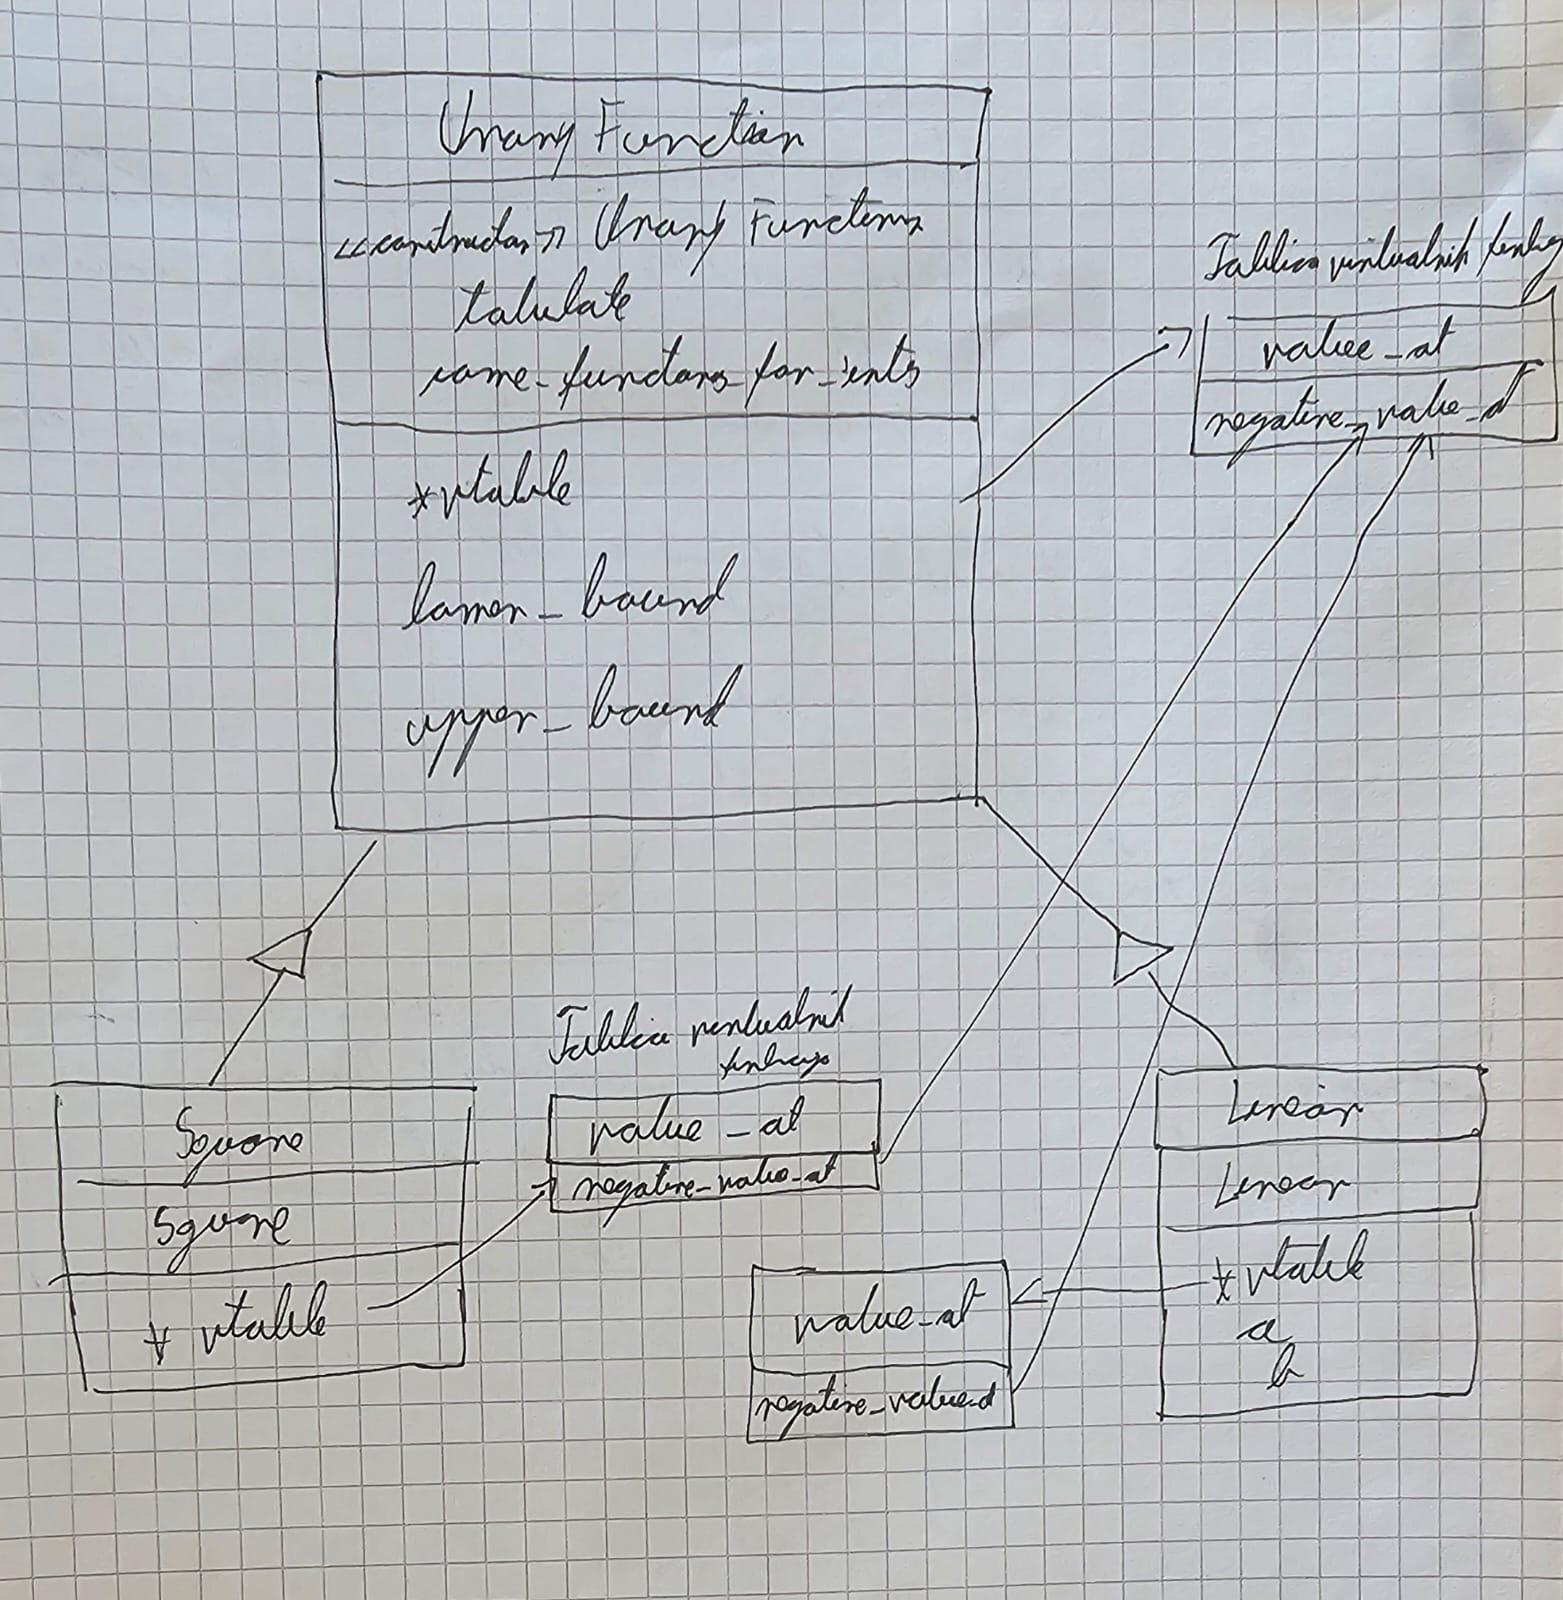 Unary Function
<<constructor>> Unary Function
tabulate
same_functions_for_ints
*vtable
lower_bound
upper_bound
Tablica virtualnih funkcija
value_at
negative_value_at
Square
Square
* vtable
Tablica virtualnih
funkcija
value_at
negative_value_at
value_at
negative_value_at
Linear
Linear
* vtable
a
b